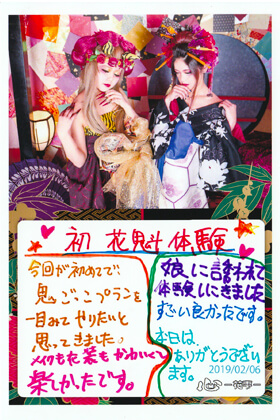 初 花魁 体験
今回が初めてで
鬼ごっこプランを
一目みてやりたいと
思ってきました。
メイクも衣装もかわいくて
楽しかったです。
娘に誘われて
体験しにきました
すごい良かったです。
本日は
ありがとうござい
ます。
2019/02/06